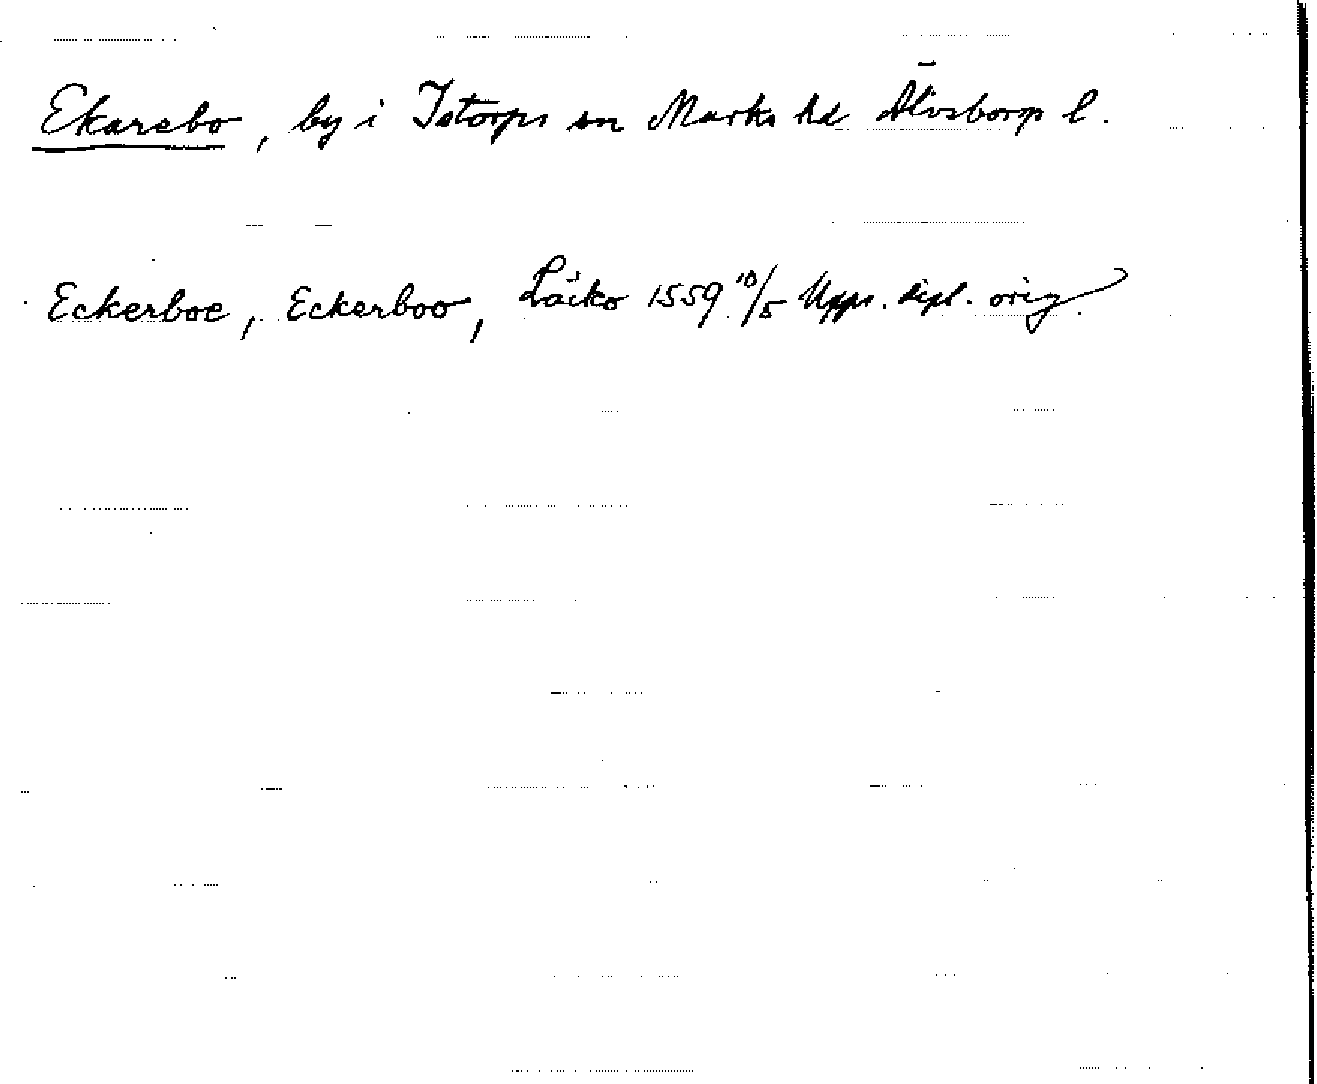 Ekarebo, by i Istorps sn Marks hd Älvsborgs l.
Eckerboe, Eckerboo, Läcko 1559 10/5 Upps. dipl. orig.